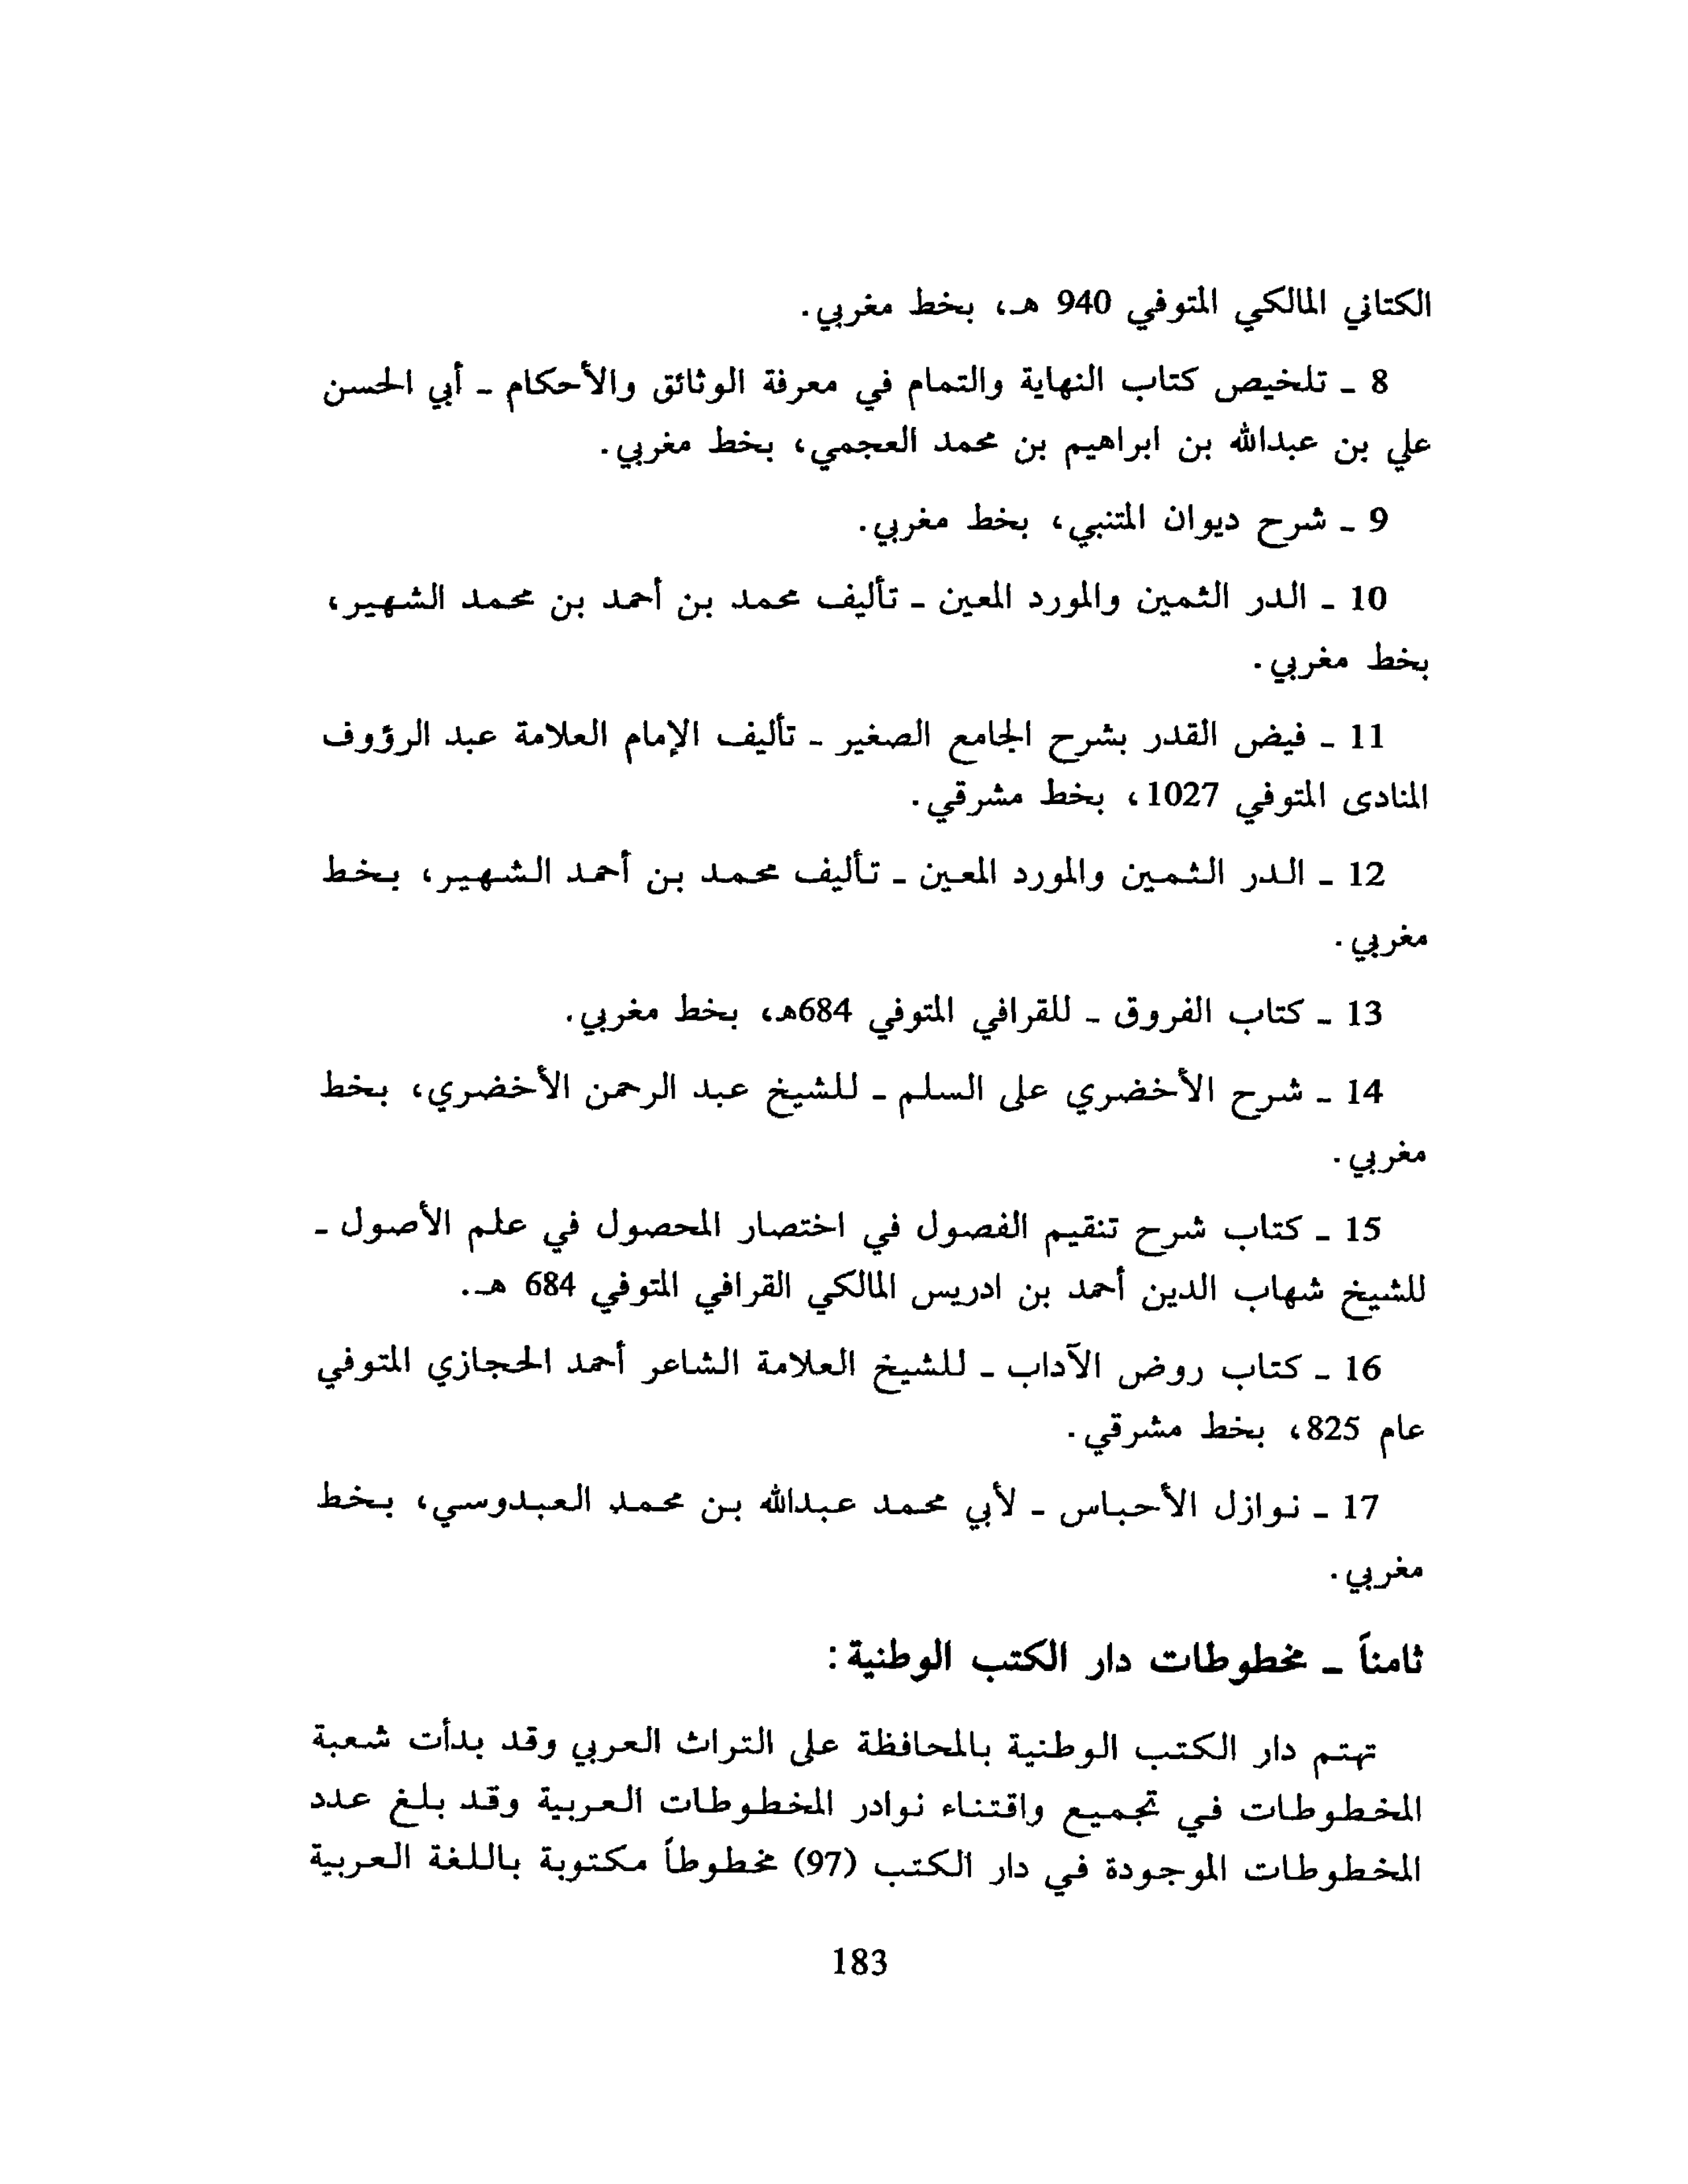 الكتاني المالكي المتوفي 940 هـ، بخط مغربي.
8 ـ تلخيص كتاب النهاية والتمام في معرفة الوثائق والأحكام ـ أبي الحسن
علي بن عبدالله بن ابراهيم بن محمد العجمي، بخط مغربي.
9 ـ شرح ديوان المتنبي، بخط مغربي.
10 ـ الدر الثمين والمورد المعين ـ تأليف محمد بن أحمد بن محمد الشهير،
بخط مغربي.
11 ـ فيض القدر بشرح الجامع الصغير ـ تأليف الإمام العلامة عبد الرؤوف
المنادى المتوفي 1027، بخط مشرقي.
12 ـ الدر الثمين والمورد المعين ـ تأليف محمد بن أحمد الشهير، بخط
مغربي.
13 ـ كتاب الفروق ـ للقرافي المتوفي 684هـ، بخط مغربي.
14 ـ شرح الأخضري على السلم ـ للشيخ عبد الرحمن الأخضري، بخط
مغربي.
15 ـ كتاب شرح تنقيم الفصول في اختصار المحصول في علم الأصول ـ
للشيخ شهاب الدين أحمد بن ادريس المالكي القرافي المتوفي 684 هـ.
16 ـ كتاب روض الآداب ـ للشيخ العلامة الشاعر أحمد الحجازي المتوفي
عام 825، بخط مشرقي.
17 ـ نوازل الأحباس ـ لأبي محمد عبدالله بن محمد العبدوسي، بخط
مغربي.
ثامناً ـ مخطوطات دار الكتب الوطنية:
تهتم دار الكتب الوطنية بالمحافظة على التراث العربي وقد بدأت شعبة
المخطوطات في تجميع واقتناء نوادر المخطوطات العربية وقد بلغ عدد
المخطوطات الموجودة في دار الكتب (97) مخطوطاً مكتوبة باللغة العربية
183